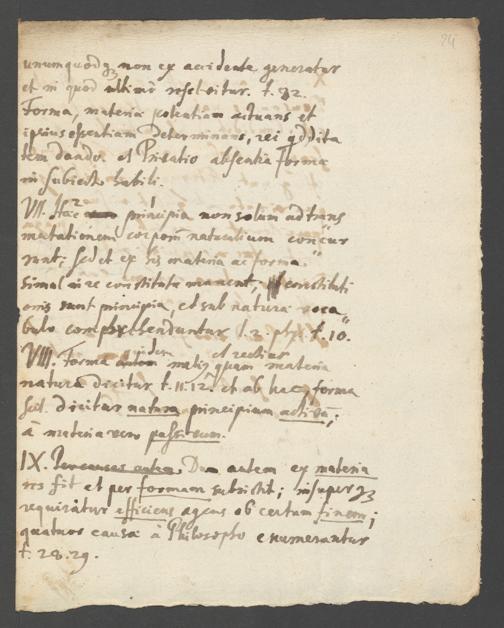 24
unumquodq3 non ex accidente generatur
et in quod ultimò resolvitur. t. 82.
Forma, materiæ potentiam actuans et
ipsius essentiam determinans, rei qddita
tem dando. et Privatio absentia formæ
in subiecto habili.
VII. Hæc principia non solum ad trans
mutationem corporū naturalium concur
runt; sed et ex iis materia ac forma
simul in re constituta manent; constituti
onis sunt principia, et sub naturæ voca
bulo comprehenduntur l. 2. phys. t. 10.
VIII. Forma autem idem et rectius
natura dicitur t. 11. 12. et ab hac, forma
scil. dicitur natura principium activū;
à materia vero passivum.
IX. Dum autem ex materia
res fit et per formam subsistit; insuperq3
requiratur efficiens agens ob certum finem;
quatuor causæ à Philosopho enumerantur
t. 28. 29.